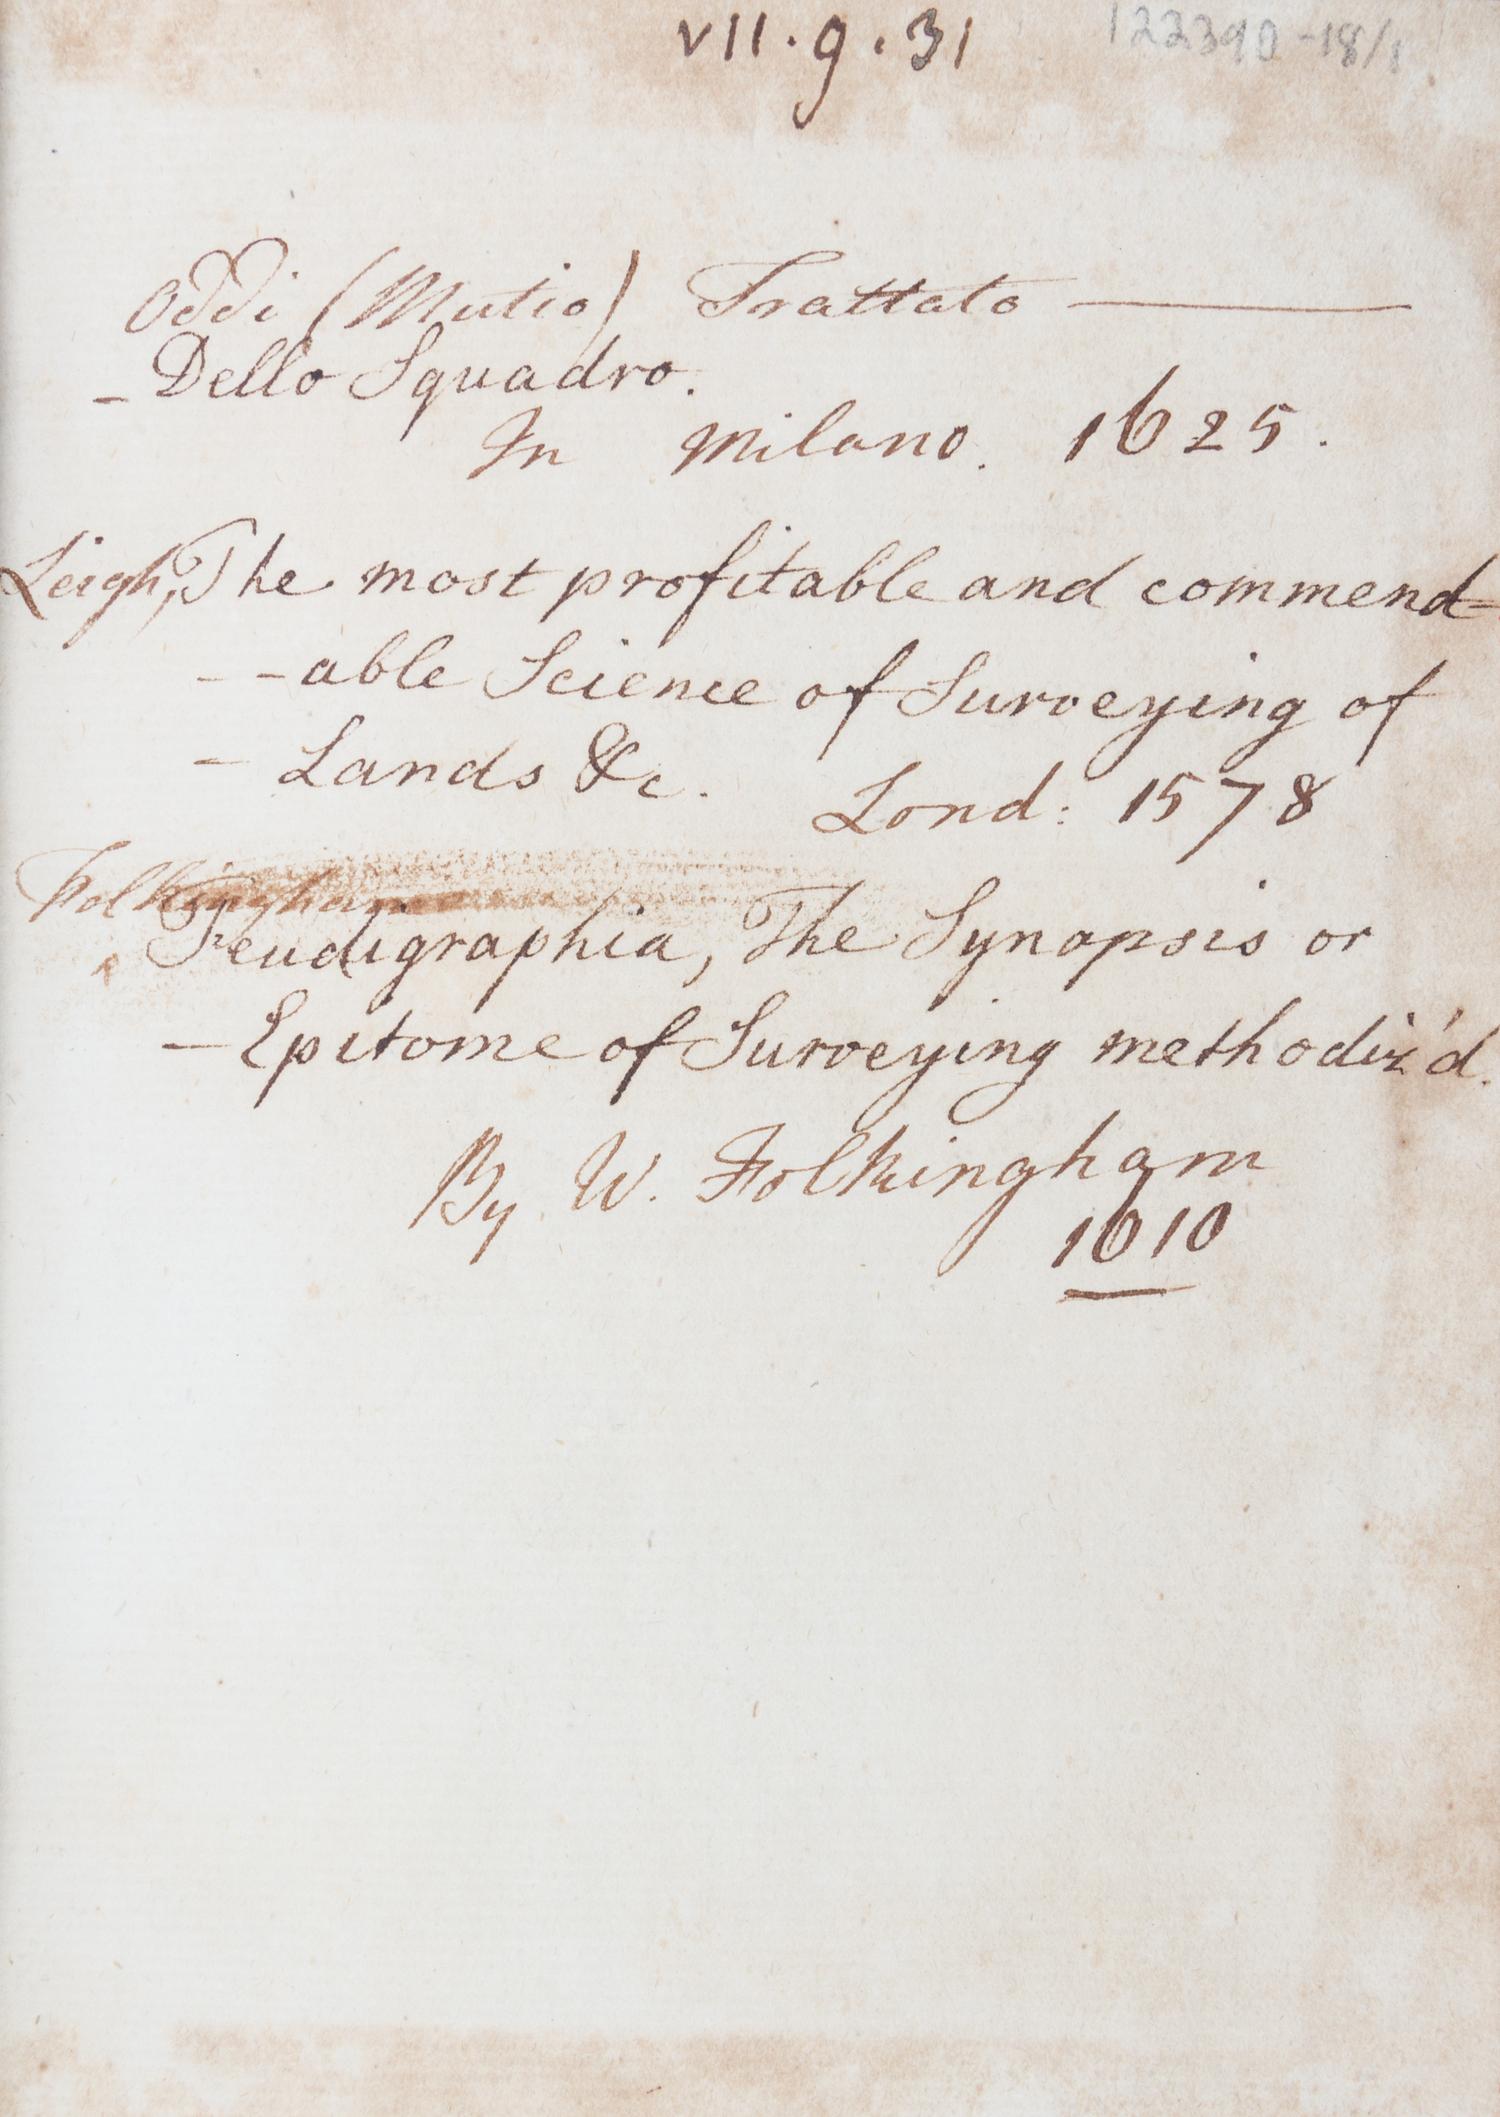 VII. g. 31
122390-18/1
Oddi (Mutio) Trattato ———
- Dello Squadro.
In Milano. 1625.
Leigh, The most profitable and commend=
--able Science of Surveying of
- Lands &c. Lond: 1578
Folkingham
Feudigraphia, The Synopsis or
- Epitome of Surveying methodiz'd.
By W. Folkingham
1610